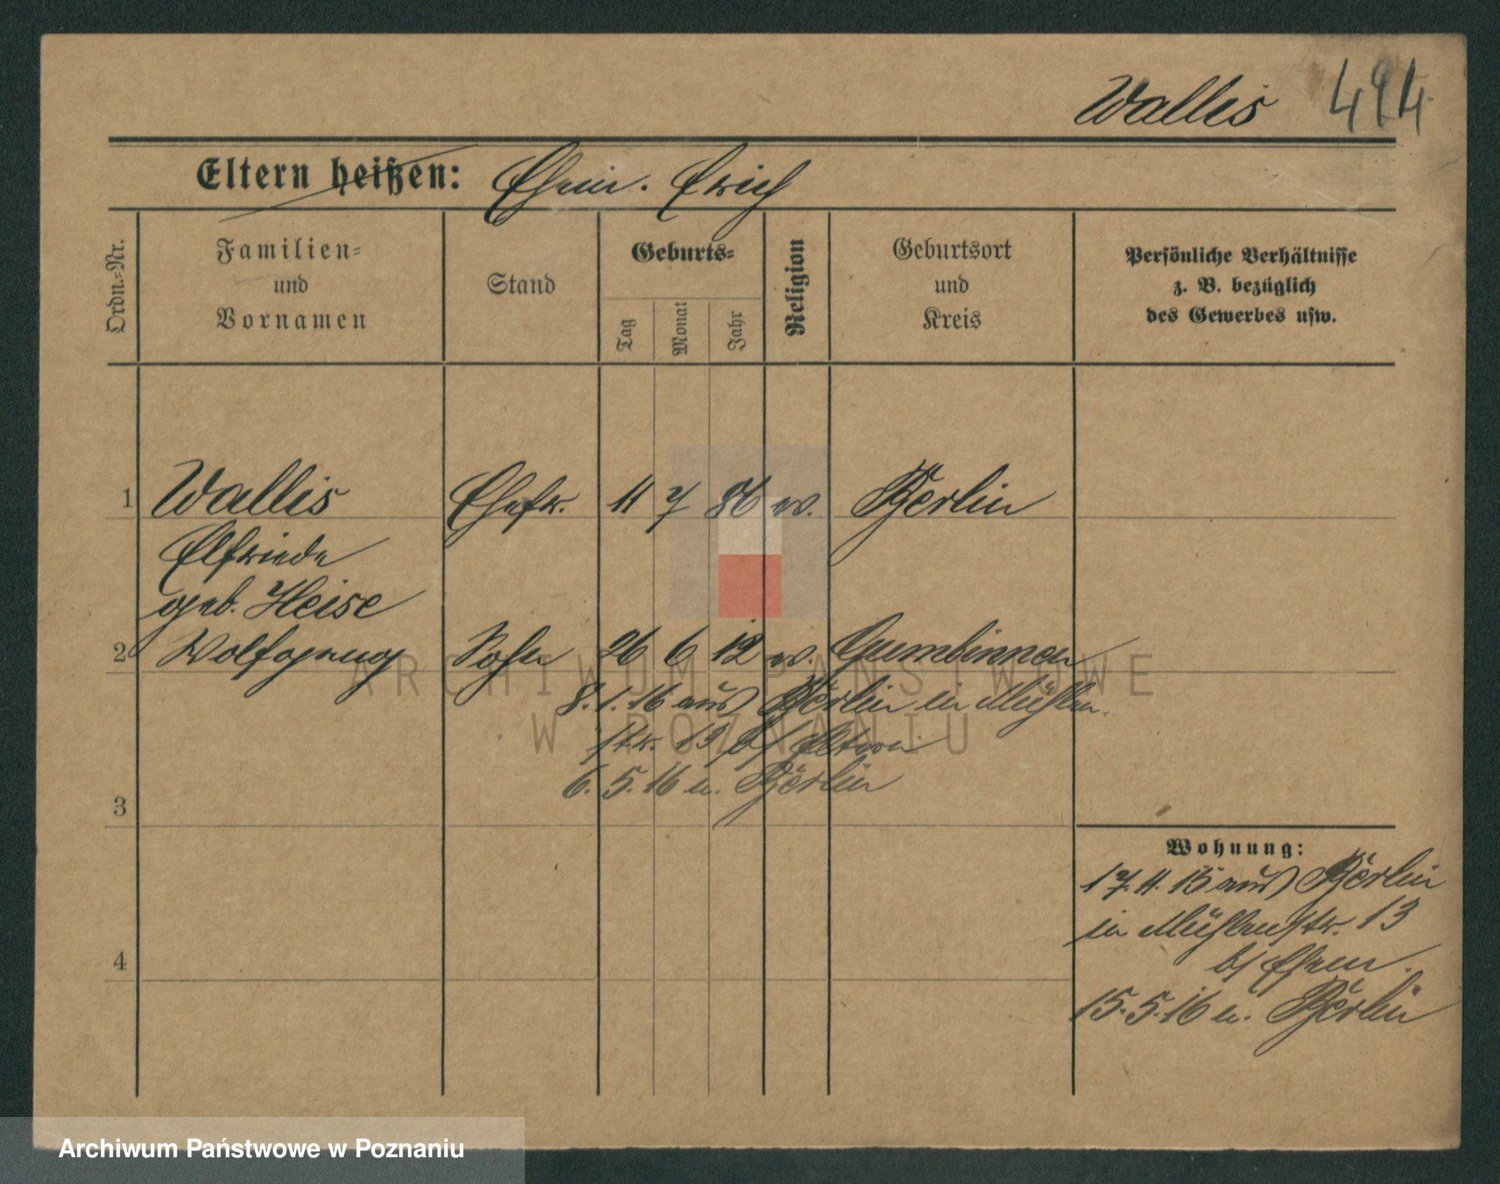 Wallis 494
Eltern heißen: Ehem. Erich
Ordn.-Nr.
Familien-
und
Vornamen
Stand
Geburts-
Tag
Monat
Jahr
Religion
Geburtsort
und
Kreis
Persönliche Verhältnisse
z. B. bezüglich
des Gewerbes usw.
1 Wallis Ehefr. 11 7 86 ev. Berlin
Elfriede
geb. Heise
2 Wolfgang Sohn 26 6 12 ev. Gumbinnen
8.1.16 aus Berlin in Mühlen-
str. 13 b/ Eltern
6.5.16 n. Berlin
3
4
Wohnung:
17.11.15 aus Berlin
in Mühlenstr. 13
b/ Ehem.
15.5.16 n. Berlin
ARCHIWUM PAŃSTWOWE
W POZNANIU
Archiwum Państwowe w Poznaniu